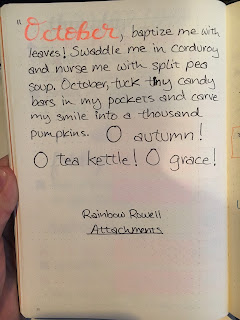 "October, baptize me with
leaves! Swaddle me in corduroy
and nurse me with split pea
soup. October, tuck tiny candy
bars in my pockets and carve
my smile into a thousand
pumpkins. O autumn!
O tea kettle! O grace!
Rainbow Rowell
Attachments